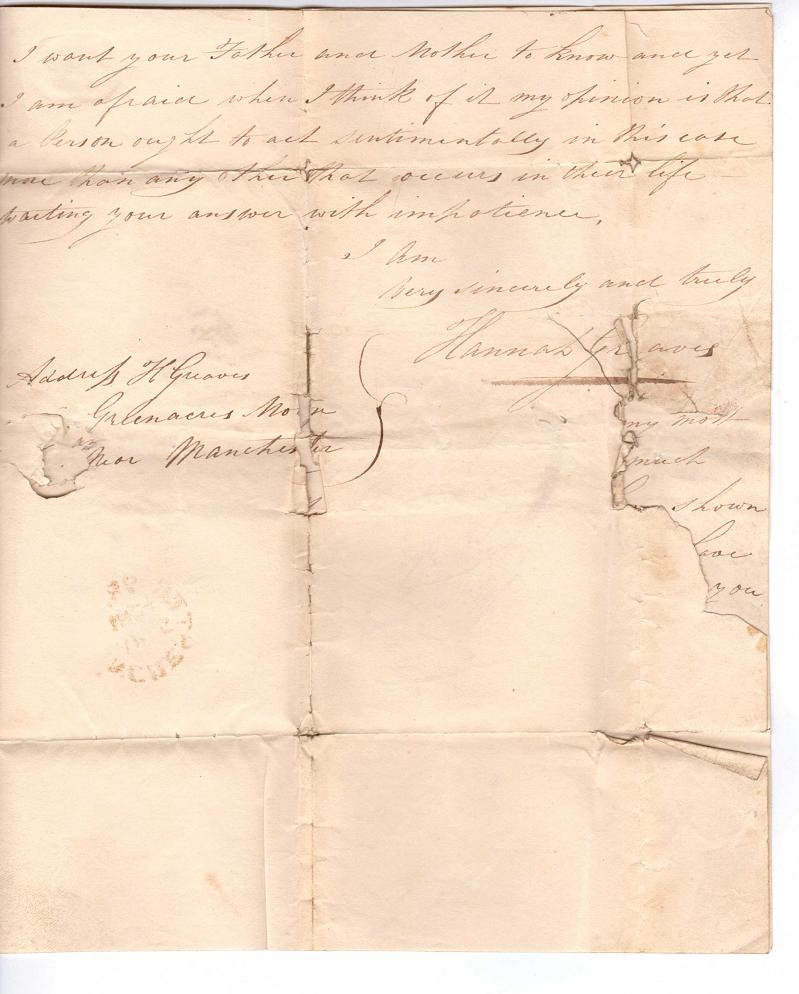 I want your Father and Mother to know and yet
I am afraid when I think of it my opinion is that
a Person ought to act sentimentally in this case
more than any other that occurs in their life
waiting your answer with impatience,
I Am
very sincerely and truly
Hannah Greaves
Address H Greaves
Greenacres Moor
Near Manchester
my most
much
shown
have
you